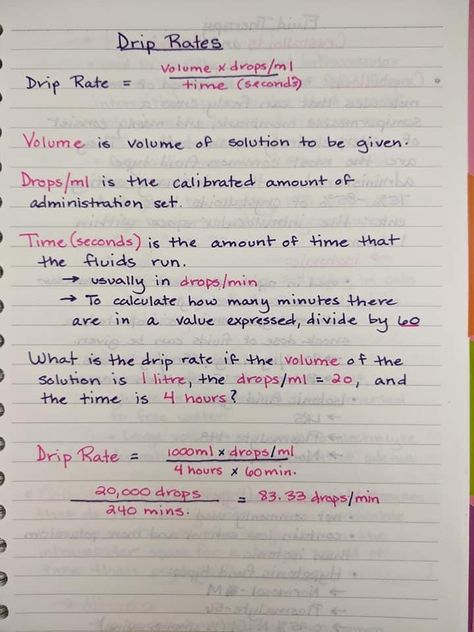 Drip Rates
Drip Rate = volume x drops/ml
time (seconds)
Volume is volume of solution to be given.
Drops/ml is the calibrated amount of
administration set.
Time (seconds) is the amount of time that
the fluids run.
→ usually in drops/min
→ To calculate how many minutes there
are in a value expressed, divide by 60
What is the drip rate if the volume of the
solution is 1 litre, the drops/ml = 20, and
the time is 4 hours?
Drip Rate = 1000ml x drops/ml
4 hours x 60min.
20,000 drops = 83.33 drops/min
240 mins.